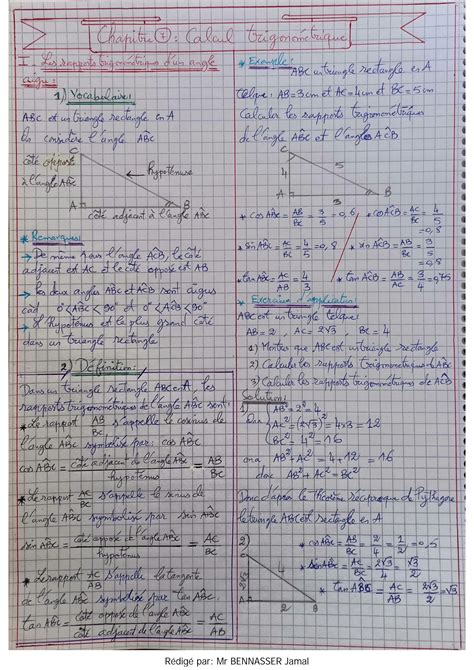 Chapitre 7: Calcul trigonométrique
I- Les rapports trigonométriques d'un angle
aigu:
1) Vocabulaire:
ABC est un triangle rectangle en A
On considère l'angle AB̂C
C
côté opposé
à l'angle AB̂C
hypoténuse
A
B
côté adjacent à l'angle AB̂C
* Remarques:
→ De même pour l'angle AĈB, le côté
adjacent est AC et le côté opposé est AB
→ Les deux angles AB̂C et AĈB sont aigus
càd 0°<AB̂C<90° et 0°<AĈB<90°
→ L'hypoténuse est le plus grand côté
dans un triangle rectangle
2) Définition:
Dans un triangle rectangle ABC en A, les
rapports trigonométriques de l'angle AB̂C sont:
* Le rapport AB/BC s'appelle le cosinus de
l'angle AB̂C symbolisé par: cos AB̂C
cos AB̂C = côté adjacent de l'angle AB̂C / hypoténuse = AB/BC
* Le rapport AC/BC s'appelle le sinus de
l'angle AB̂C symbolisé par sin AB̂C
sin AB̂C = côté opposé de l'angle AB̂C / hypoténuse = AC/BC
* Le rapport AC/AB s'appelle la tangente
de l'angle AB̂C symbolisé par tan AB̂C
tan AB̂C = côté opposé de l'angle AB̂C / côté adjacent de l'angle AB̂C = AC/AB
* Exemple:
ABC est un triangle rectangle en A
tel que: AB=3cm et AC=4cm et BC=5cm
Calculer les rapports trigonométriques
de l'angle AB̂C et l'angle AĈB
C
4
5
A
3
B
* cos AB̂C = AB/BC = 3/5 = 0,6
* cos AĈB = AC/BC = 4/5 = 0,8
* sin AB̂C = AC/BC = 4/5 = 0,8
* sin AĈB = AB/BC = 3/5
* tan AB̂C = AC/AB = 4/3
* tan AĈB = AB/AC = 3/4 = 0,75
* Exercice d'application:
ABC est un triangle tel que:
AB = 2 , AC = 2√3 , BC = 4
1) Montrer que ABC est un triangle rectangle
2) Calculer les rapports trigonométriques de AB̂C
3) Calculer les rapports trigonométriques de AĈB
Solution:
1) AB² = 2² = 4
AC² = (2√3)² = 4×3 = 12
BC² = 4² = 16
on a AB² + AC² = 4 + 12 = 16
donc AB² + AC² = BC²
Donc d'après le théorème réciproque de Pythagore
le triangle ABC est rectangle en A
2)
C
4
A
2
B
* cos AB̂C = AB/BC = 2/4 = 1/2 = 0,5
* sin AB̂C = AC/BC = 2√3/4 = √3/2
* tan AB̂C = AC/AB = 2√3/2 = √3
Rédigé par: Mr BENNASSER Jamal